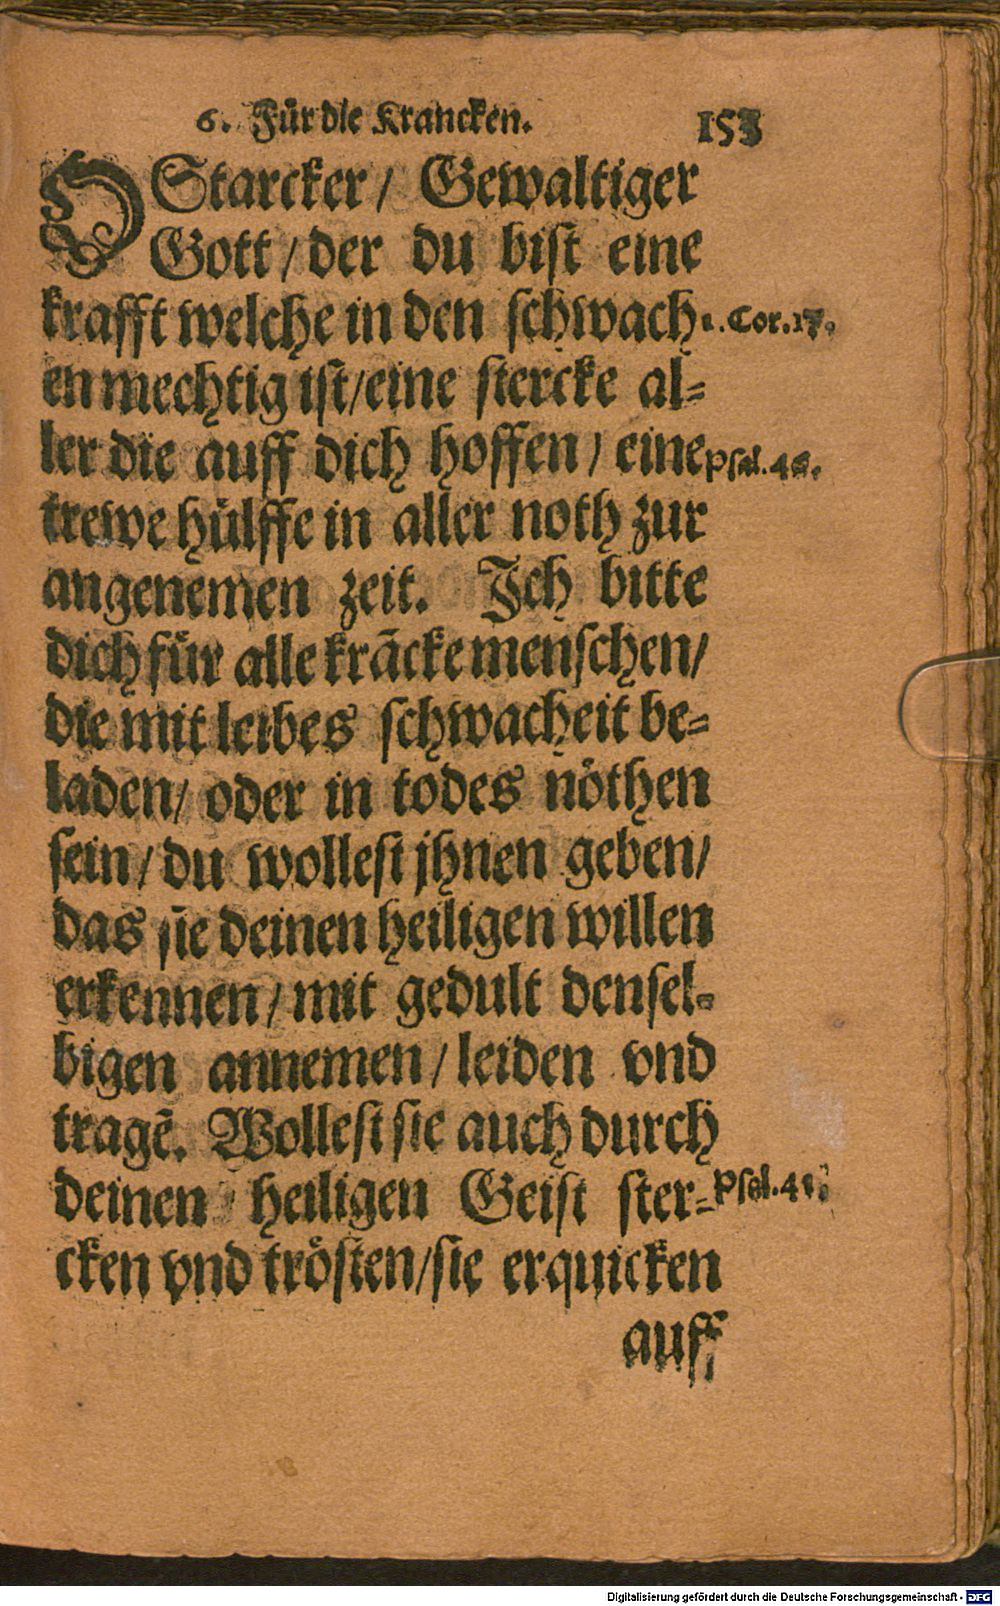 6. Für die Krancken. 153
O Starcker / Gewaltiger
Gott / der du bist eine
krafft welche in den schwach
en mechtig ist / eine stercke al=
ler die auff dich hoffen / eine
trewe hülffe in aller noth zur
angenemen zeit. Ich bitte
dich für alle krācke menschen /
die mit leibes schwacheit be=
laden / oder in todes nöthen
sein / du wollest jhnen geben /
das sie deinen heiligen willen
erkennen / mit gedult densel=
bigen annemen / leiden vnd
tragē. Wollest sie auch durch
deinen heiligen Geist ster=
cken vnd trösten / sie erquicken
auff
Cor.
Psal. 46.
Psal. 41.
Digitalisierung gefördert durch die Deutsche Forschungsgemeinschaft - DFG